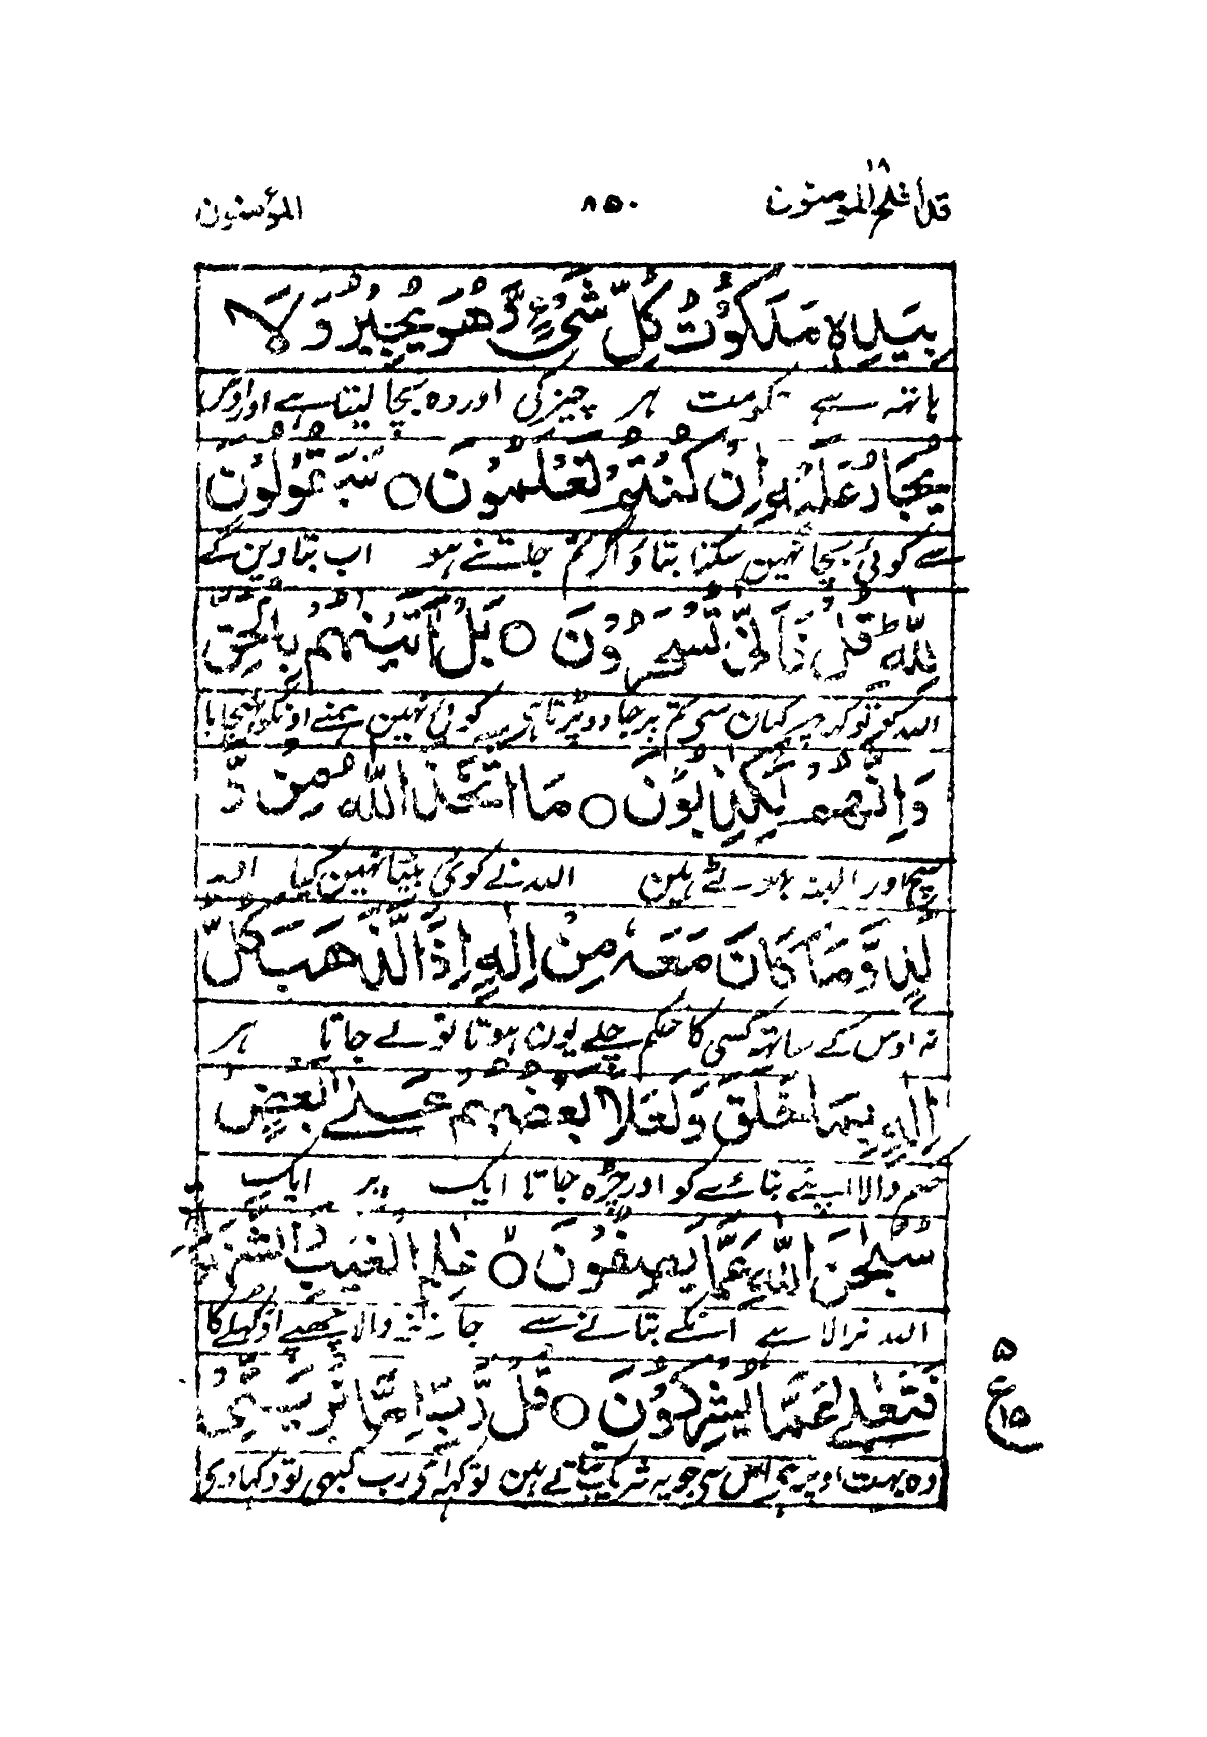 قد افلح المؤمنون ۱۸
۸۵۰
المؤمنون
بِيَدِهٖ مَلَكُوْتُ كُلِّ شَيْءٍ وَّهُوَ يُجِيْرُ وَلَا
ہاتھہ سے حکومت ہر چیز کی اور وہ بچا لیتا ہے اور اوس
يُجَارُ عَلَيْهِ اِنْ كُنْتُمْ تَعْلَمُوْنَ ○ سَيَقُوْلُوْنَ
سے کوئی بچا نہین سکتا بتاؤ اگر تم جانتے ہو اب بتا دین گے
لِلّٰهِ ؕ قُلْ فَاَنّٰى تُسْحَرُوْنَ ○ بَلْ اَتَيْنٰهُمْ بِالْحَقِّ
اللہ کو تو کہہ پہر کہان سی تم پر جادو پڑتا ہی کوئی نہین ہمنے اونکو پہنچایا
وَاِنَّهُمْ لَكٰذِبُوْنَ ○ مَا اتَّخَذَ اللّٰهُ مِنْ وَّ
سچ اور البتہ جھوٹے ہین اللہ نے کوئی بیٹا نہین کیا اللہ
لَدٍ وَّمَا كَانَ مَعَهٗ مِنْ اِلٰهٍ اِذًا لَّذَهَبَ كُلُّ
نہ اوس کے ساتھہ کسی کا حکم چلے یون ہوتا تو لے جاتا ہر
اِلٰهٍ بِمَا خَلَقَ وَلَعَلَا بَعْضُهُمْ عَلٰى بَعْضٍ
حکم والا اپنے بنائے کو اور چڑہ جاتا ایک پر ایک
سُبْحٰنَ اللّٰهِ عَمَّا يَصِفُوْنَ ○ عٰلِمِ الْغَيْبِ وَالشَّهَادَةِ
اللہ نرالا ہے انکے بتانے سے جاننے والا چھپے اور کھلے کا
فَتَعٰلٰى عَمَّا يُشْرِكُوْنَ ○ قُلْ رَّبِّ اِمَّا تُرِيَنِّيْ
وہ بہت اوپر ہے اس سی جو یہ شریک بتاتے ہین تو کہہ ای رب کبھی تو دکہا دی
۵
ع
۱۵